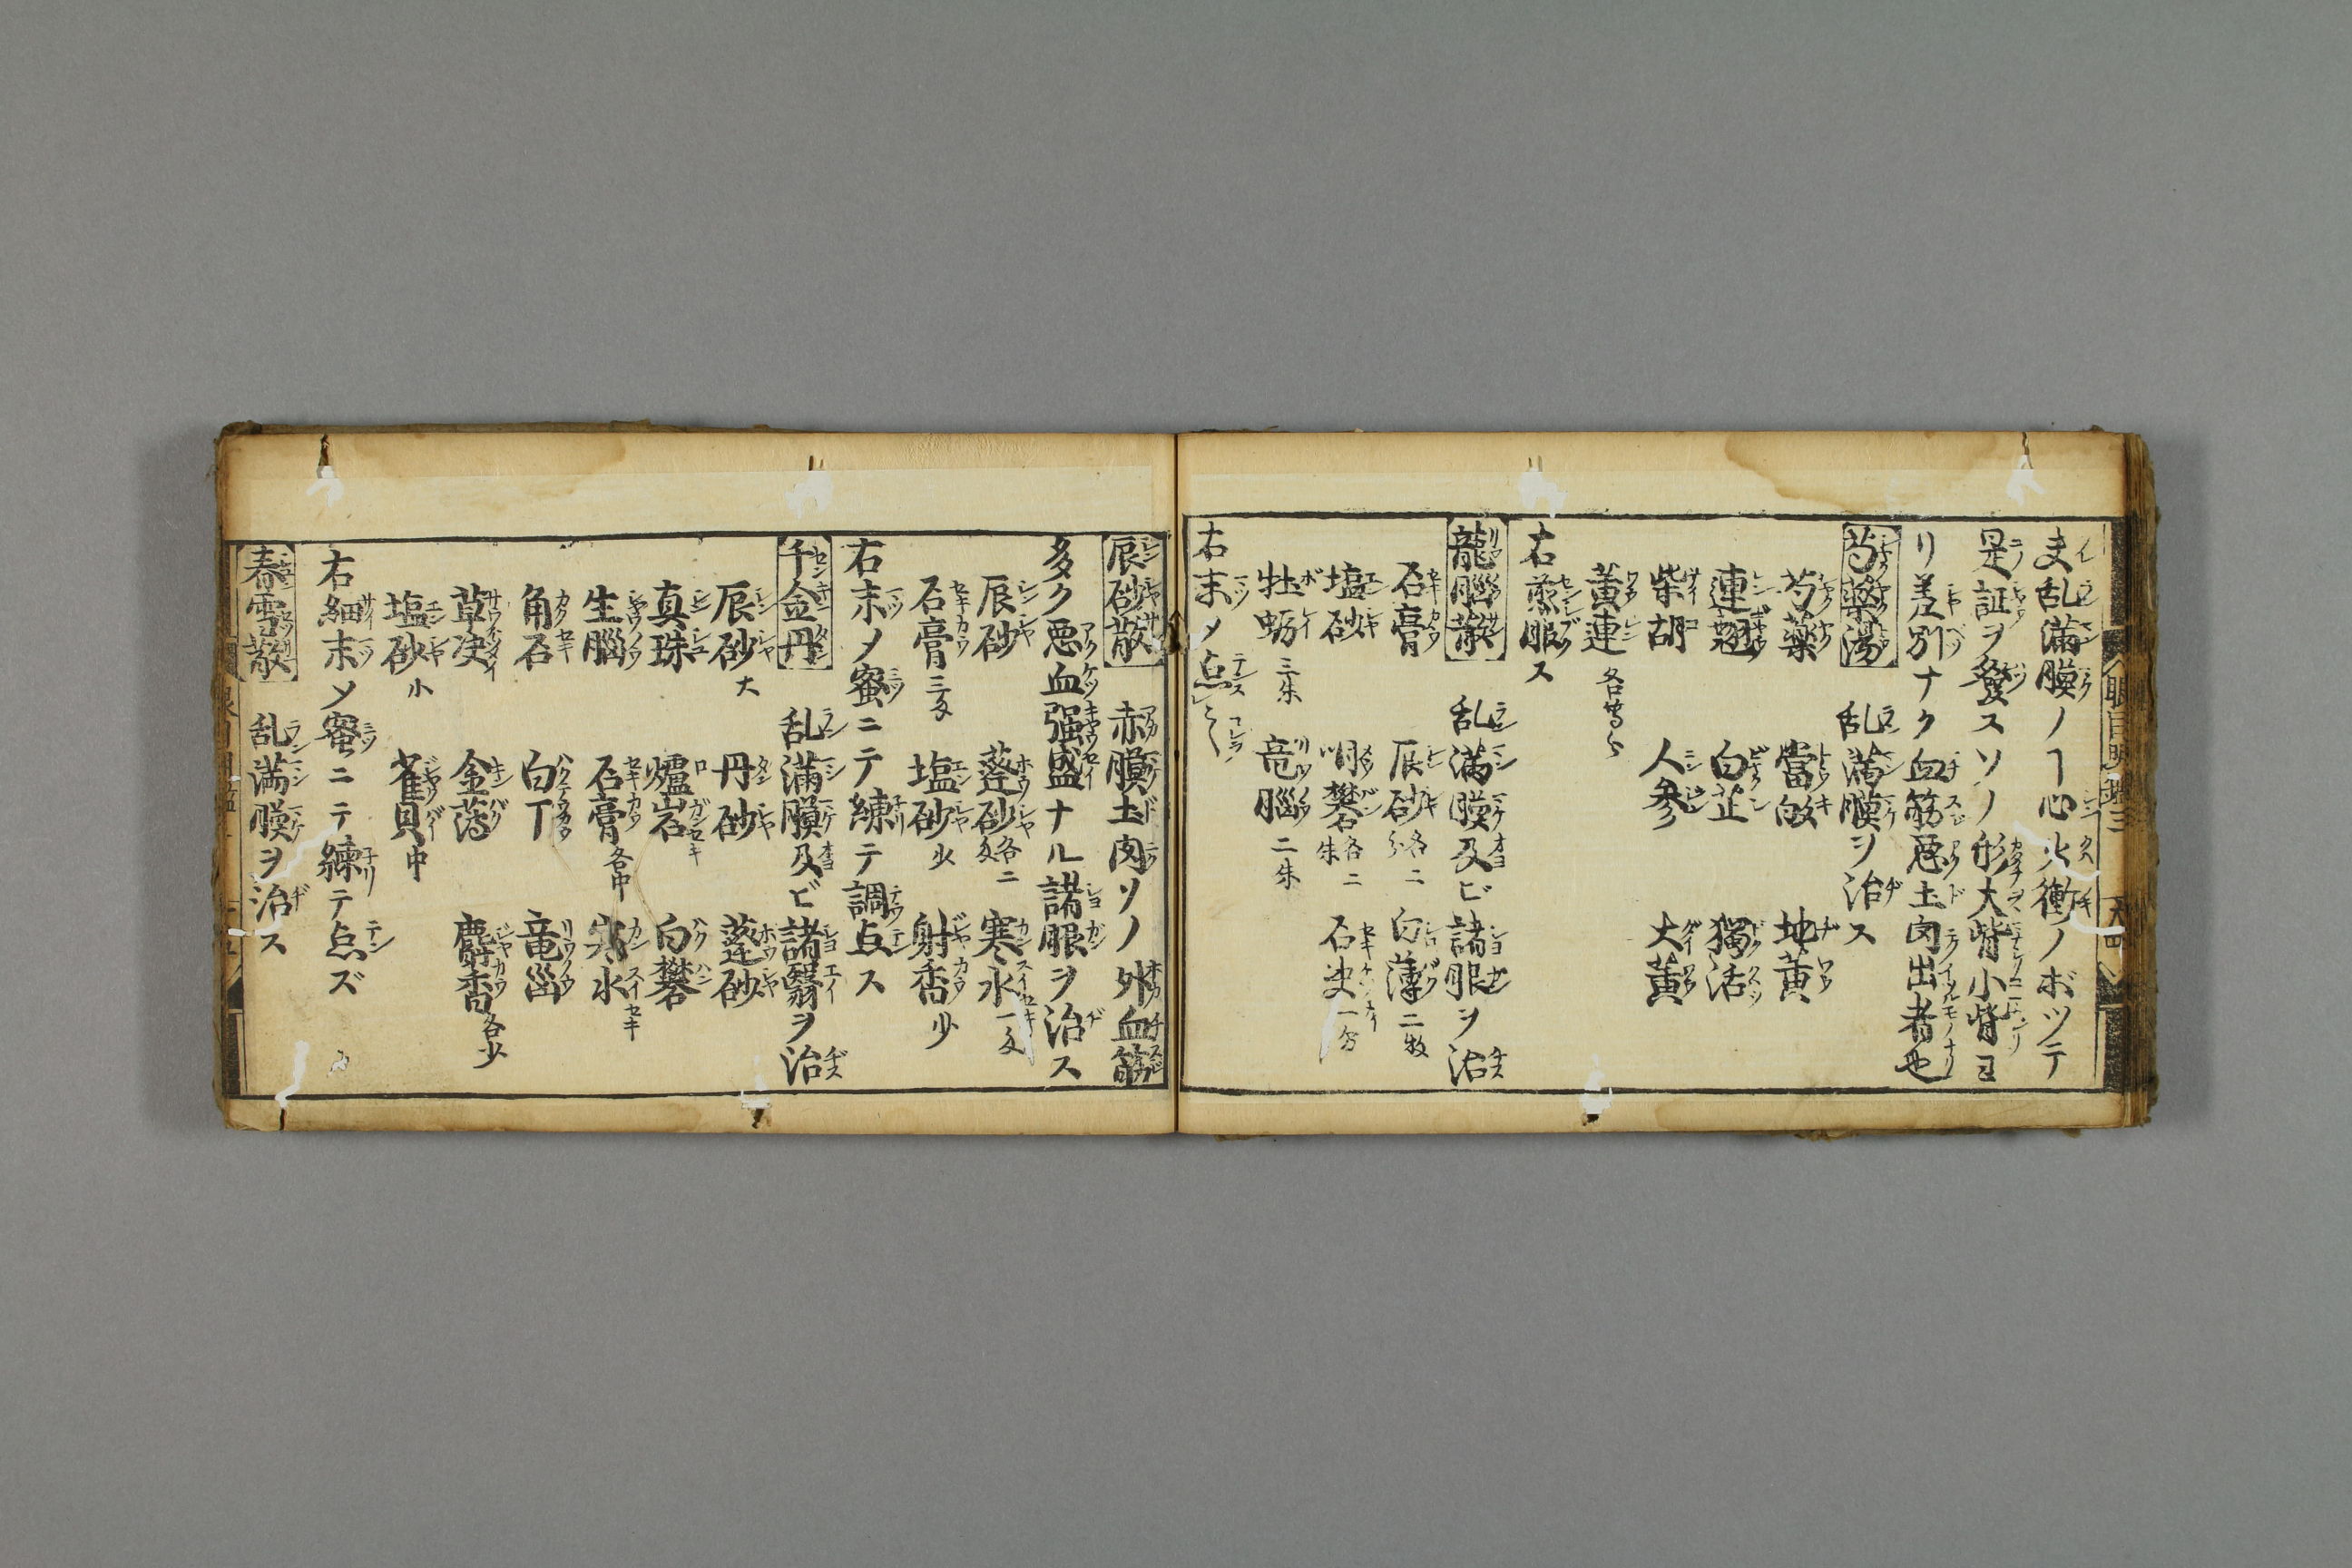 ま乱満膜ノヿ心火衝ノボツテ
是証ヲ發スソノ形大眥小眥ヨ
リ差別ナク血筋悪土肉出者也
芍薬湯 乱満膜ヲ治ス
芍薬 當皈 地黄
連翹 白芷 獨活
柴胡 人参 大黄
黄連 各等分
右煎服ス
龍腦散 乱満膜及ビ諸眼ヲ治
石膏 辰砂各二分 白薄二枚
塩砂 明礬各二朱 石决一分
牡蛎三朱 竜腦二朱
右末メ点之
辰砂散 赤膜土肉ソノ外血筋
多ク悪血强盛ナル諸眼ヲ治ス
辰砂 蓬砂各二匁 寒水一匁
石膏三匁 塩砂少 射香少
右末メ蜜ニテ練テ調点ス
千金丹 乱満膜及ビ諸翳ヲ治
辰砂大 丹砂 蓬砂
真珠 爐岩 白礬
生腦 石膏各中 寒水
角石 白丁 竜歯
草决 金薄 麝香各少
塩砂小 雀貝中
右細末メ蜜ニテ練テ点ズ
春雪散 乱満膜ヲ治ス